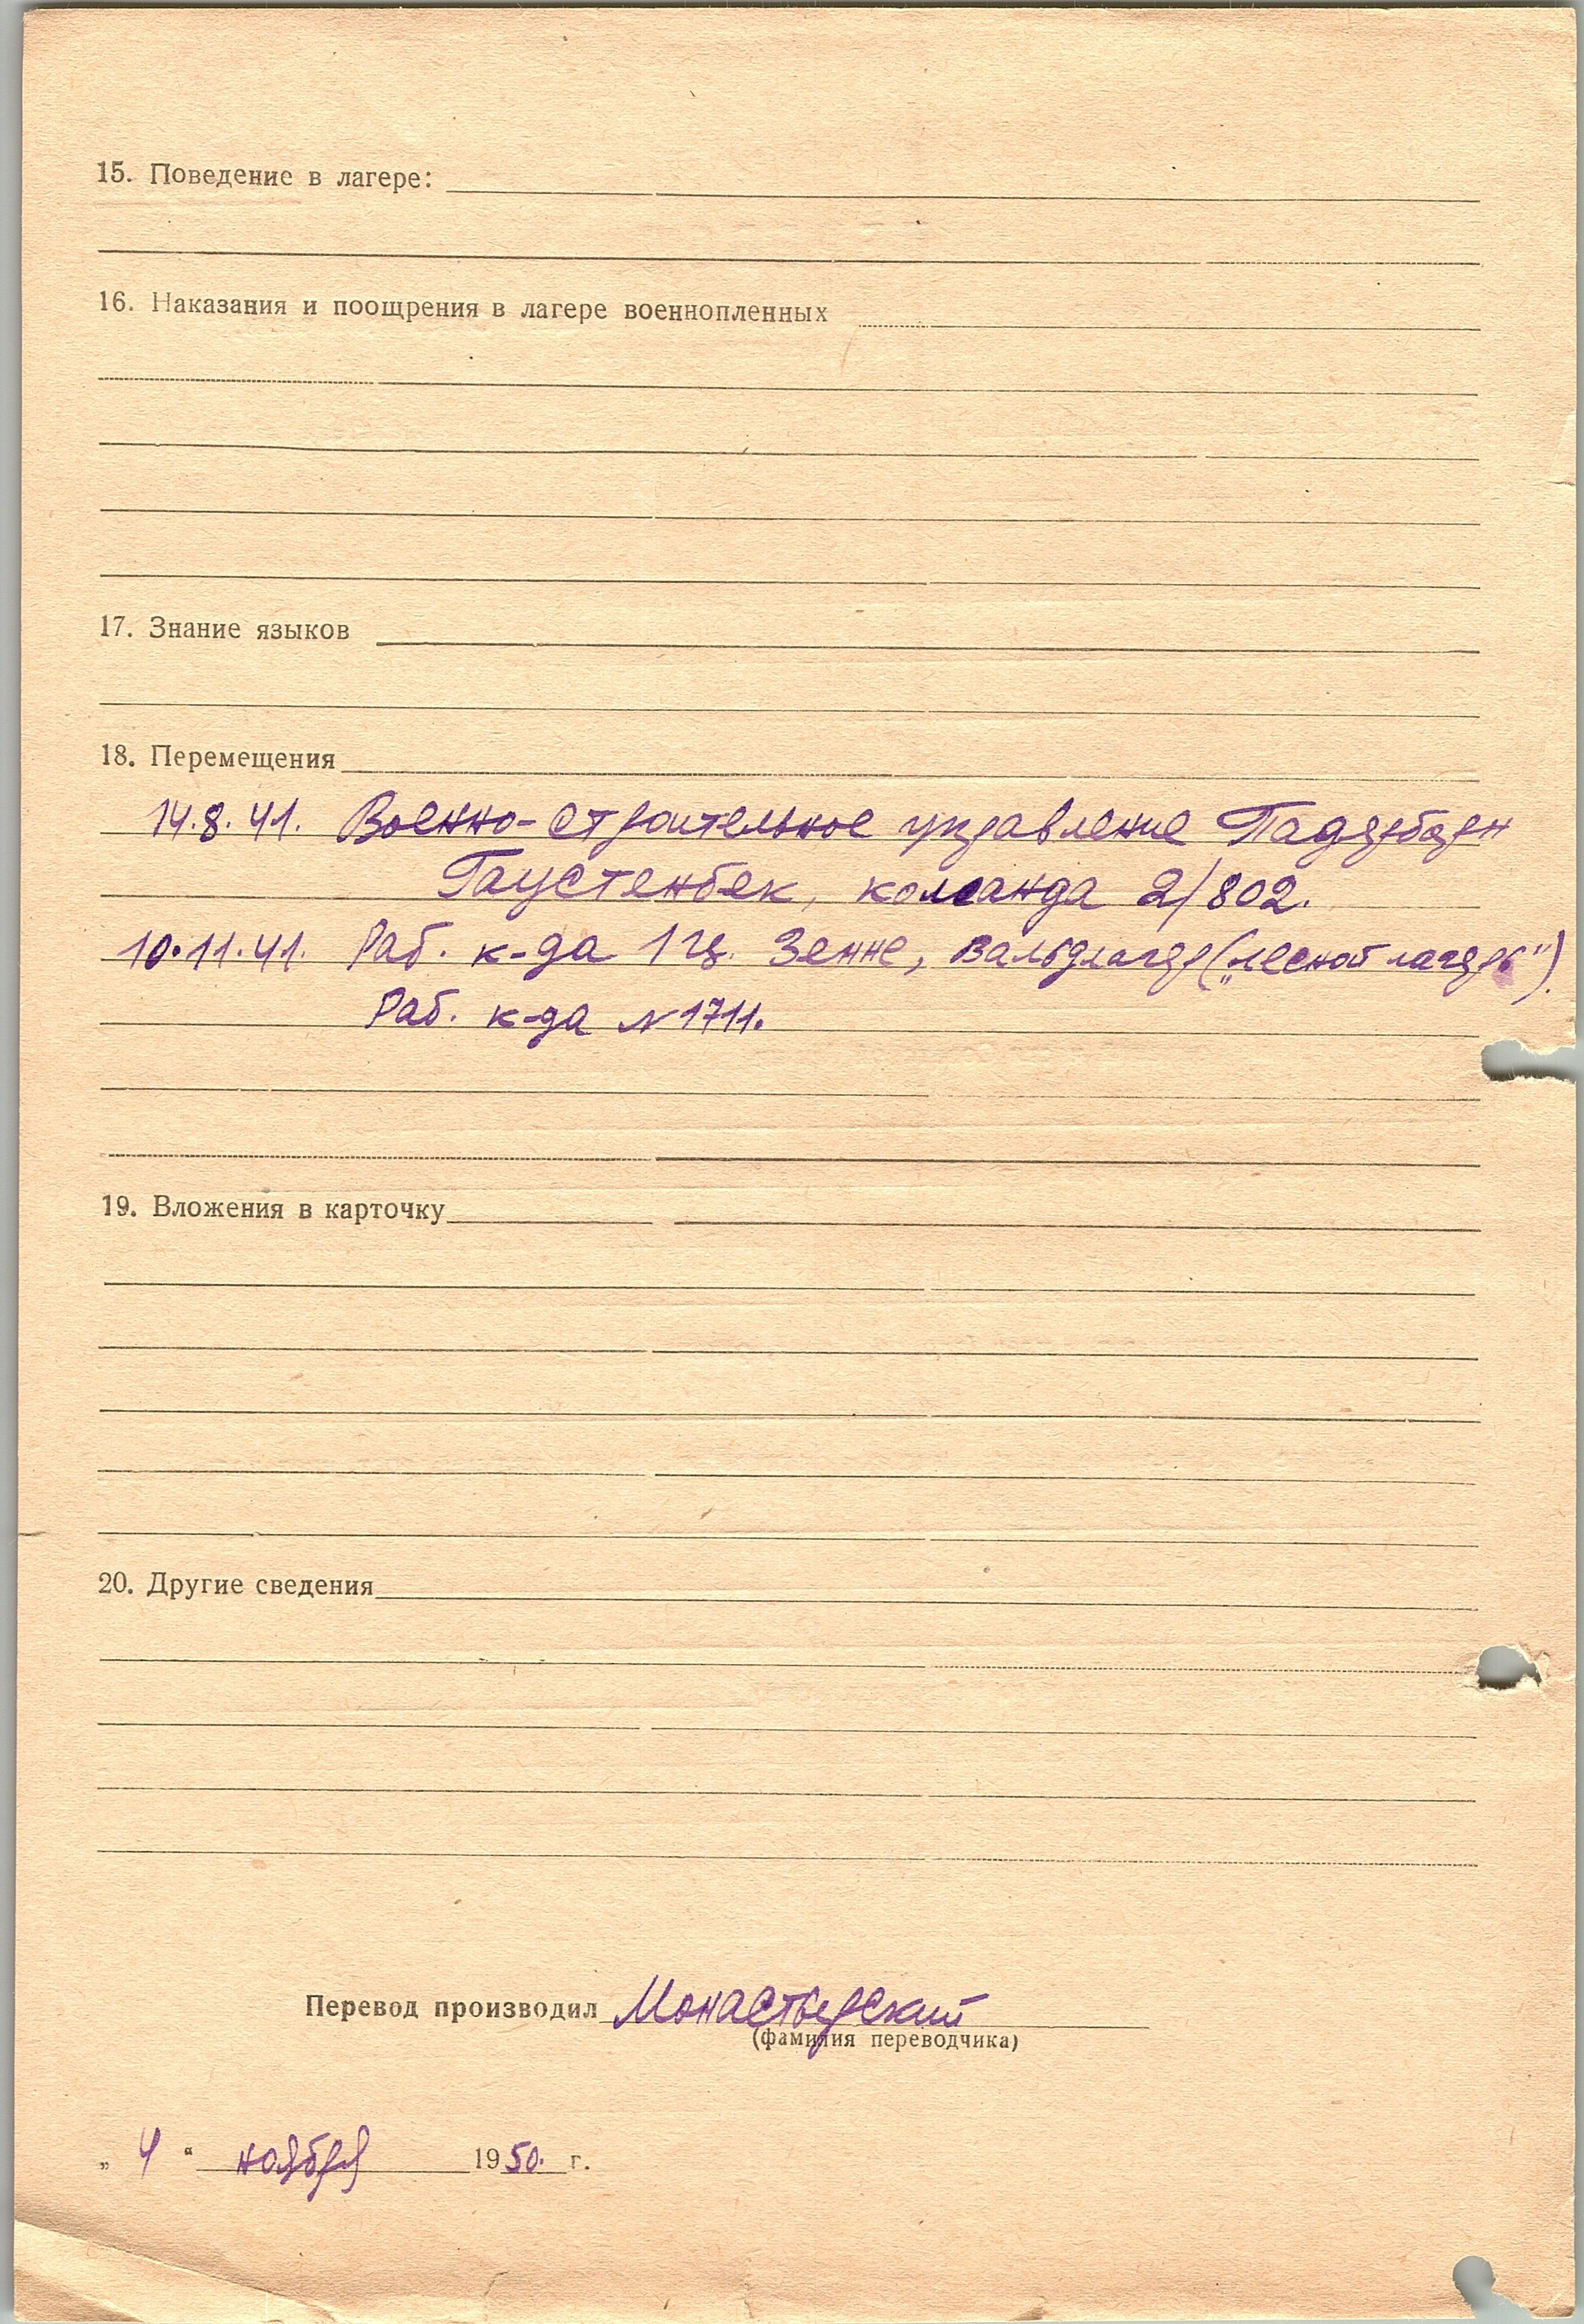 15. Поведение в лагере:
16. Наказания и поощрения в лагере военнопленных
17. Знание языков
18. Перемещения
14.8.41. Военно-строительное управление Падерборн
Гаустенбек, команда 2/802.
10.11.41. Раб. к-да 1 гц. Зенне, Вальдлагер („лесной лагерь“).
Раб. к-да № 1711.
19. Вложения в карточку
20. Другие сведения
Перевод производил Монастырский
(фамилия переводчика)
„ 4 “ ноября 1950. г.